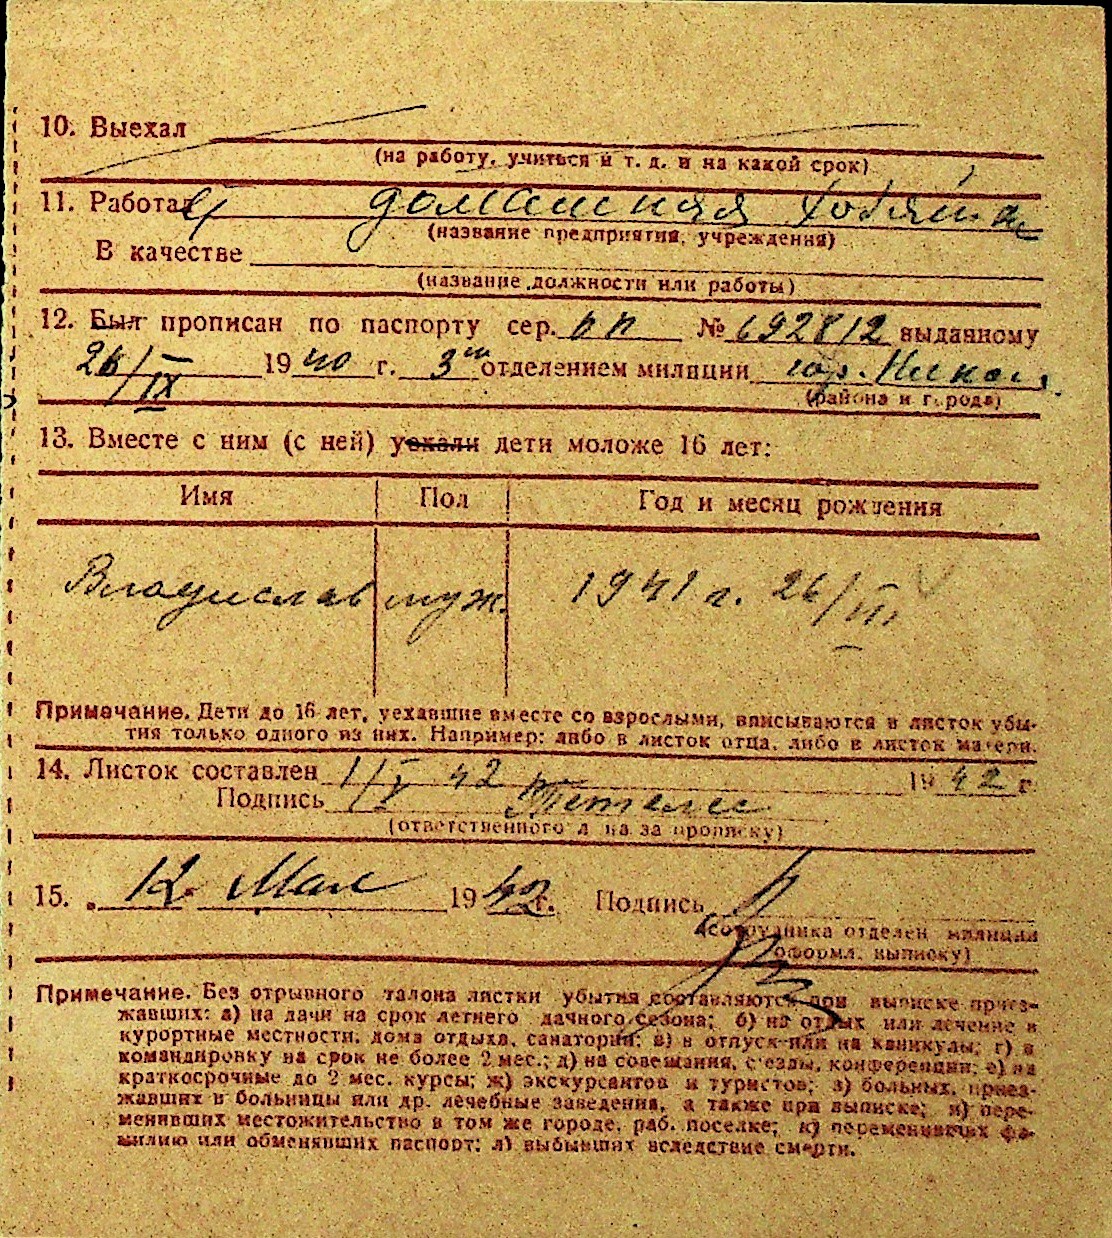 10. Выехал
(на работу, учиться и т. д. и на какой срок)
11. Работал домашняя хозяйка
(название предприятия, учреждения)
В качестве
(название должности или работы)
12. Был прописан по паспорту сер. № 692812 выданному
26/IX 1940 г. 3м отделением милиции гор.
(района и города)
13. Вместе с ним (с ней) уехали дети моложе 16 лет:
Имя Пол Год и месяц рождения
Владислав муж. 1941 г. 26/III
Примечание. Дети до 16 лет, уехавшие вместе со взрослыми, вписываются в листок убы-
тия только одного из них. Например: либо в листок отца, либо в листок матери.
14. Листок составлен 1/V 42 1942 г
Подпись
(ответственного лица за прописку)
15. „ 12 Мая 1942 г. Подпись
(сотрудника отделен милиции
оформл. выписку)
Примечание. Без отрывного талона листки убытия составляются при выписке приез-
жавших: а) на дачи на срок летнего дачного сезона; б) на отдых или лечение в
курортные местности, дома отдыха, санатории; в) в отпуск или на каникулы; г) в
командировку на срок не более 2 мес.; д) на совещания, с'езды, конференции; е) на
краткосрочные до 2 мес. курсы; ж) экскурсантов и туристов; з) больных, приез-
жавших в больницы или др. лечебные заведения, а также при выписке; и) пере-
менивших местожительство в том же городе, раб. поселке; к) переменивших фа-
милию или обменявших паспорт; л) выбывших вследствие смерти.